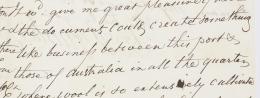 give me great pleasure,
the documents could create something
like business between this port &
those of Australia in all the quarter
where wool is so extensively cultivate